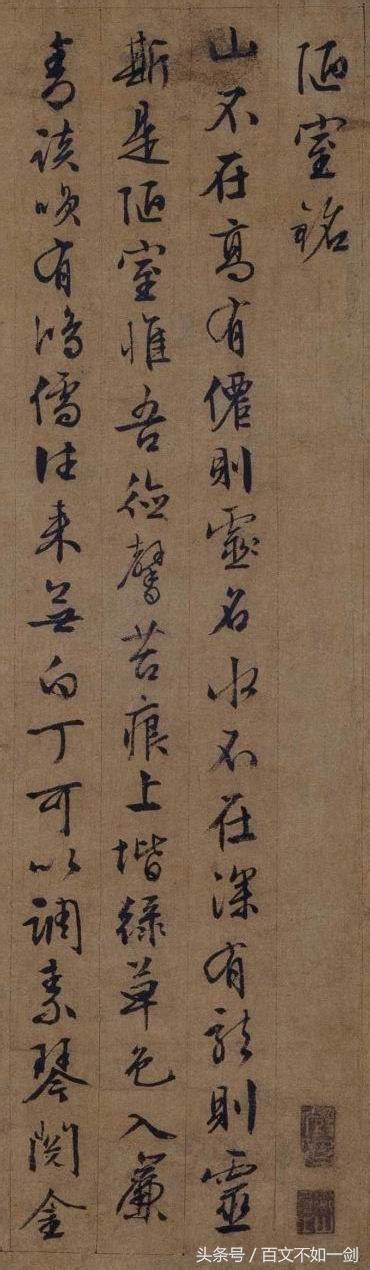 陋室銘
山不在高有僊則靈名水不在深有龍則靈
斯是陋室惟吾德馨苔痕上堦綠草色入簾
青談咲有鴻儒往来無白丁可以調素琴閱金
头条号 / 百文不如一剑